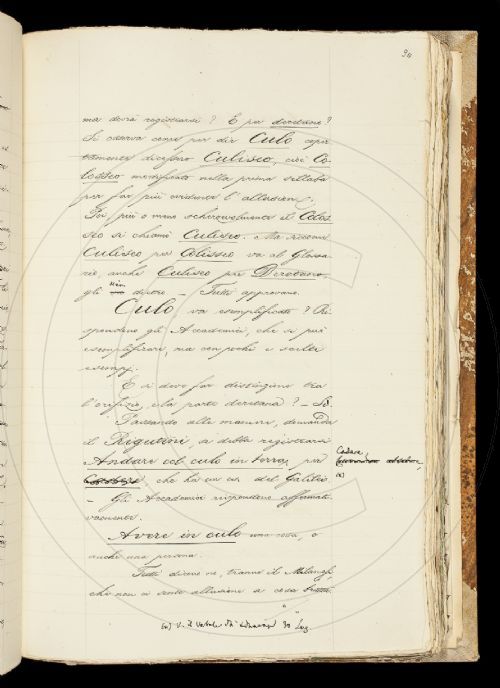 30
ma dovrà registrarsi? E per deretano?
Si osserva come per dir Culo coper
tamente dicessero Culiseo, cioè Co-
losseo manifesto nella prima sillaba
per far più evidente l'allusione.
Poi più o meno scherzevolmente il Colos
seo si chiamò Culiseo. Ma siccome
Culiseo per Colosseo va al Glossa
rio, anche Culiseo per Deretano,
gli vien dietro — Tutti approvano.
Culo, va esemplificato? Ri
spondono gli Accademici, che si può
esemplificare, ma con pochi e scelti
esempj.
E si deve far distinzione tra
l'orifizio, e la parte deretana? — Sì.
Passando alle maniere, domanda
il Rigutini, se debba registrarsi
Andare col culo in terra, per
Cadere,
(a)
che ha un es. del Galileo
— Gli Accademici rispondono affermati
vamente.
Avere in culo una cosa, o
anche una persona.
Tutti dicono no, tranne il Milanesi,
che non ci sente allusione a cosa brutta.
(a) V. il Verbale dell'adunanza 30 Lug.